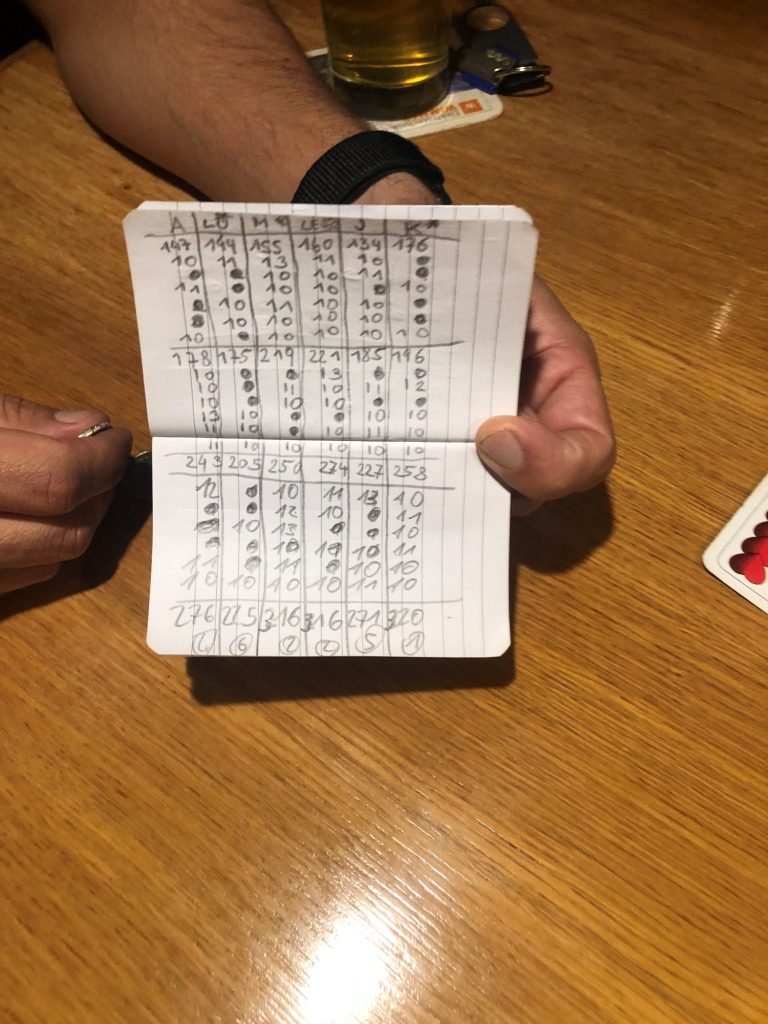 A LÜ M LE J K
147 144 155 160 134 176
10 11 13 11 10
10 10 11
11 10 10 10
10 11 10 10
10 10 10 10
10 10 10 10 10
178 175 219 221 185 196
10 13
10 11 10 11 12
10 10 10
13 10 10 10
11 10 10 11 10
11 10 10 10 10 10
243 205 250 274 227 258
12 10 11 13 10
12 10 11
10 13 10
10 11 10 11
11 11 10 10
10 10 10 10 11 10
276 225 316 316 271 320
4 6 2 2 5 1